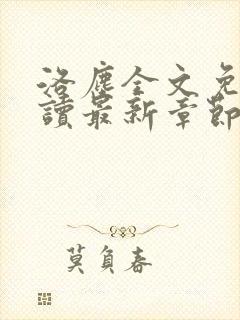 洛塵全文免
讀最新章節
莫負春